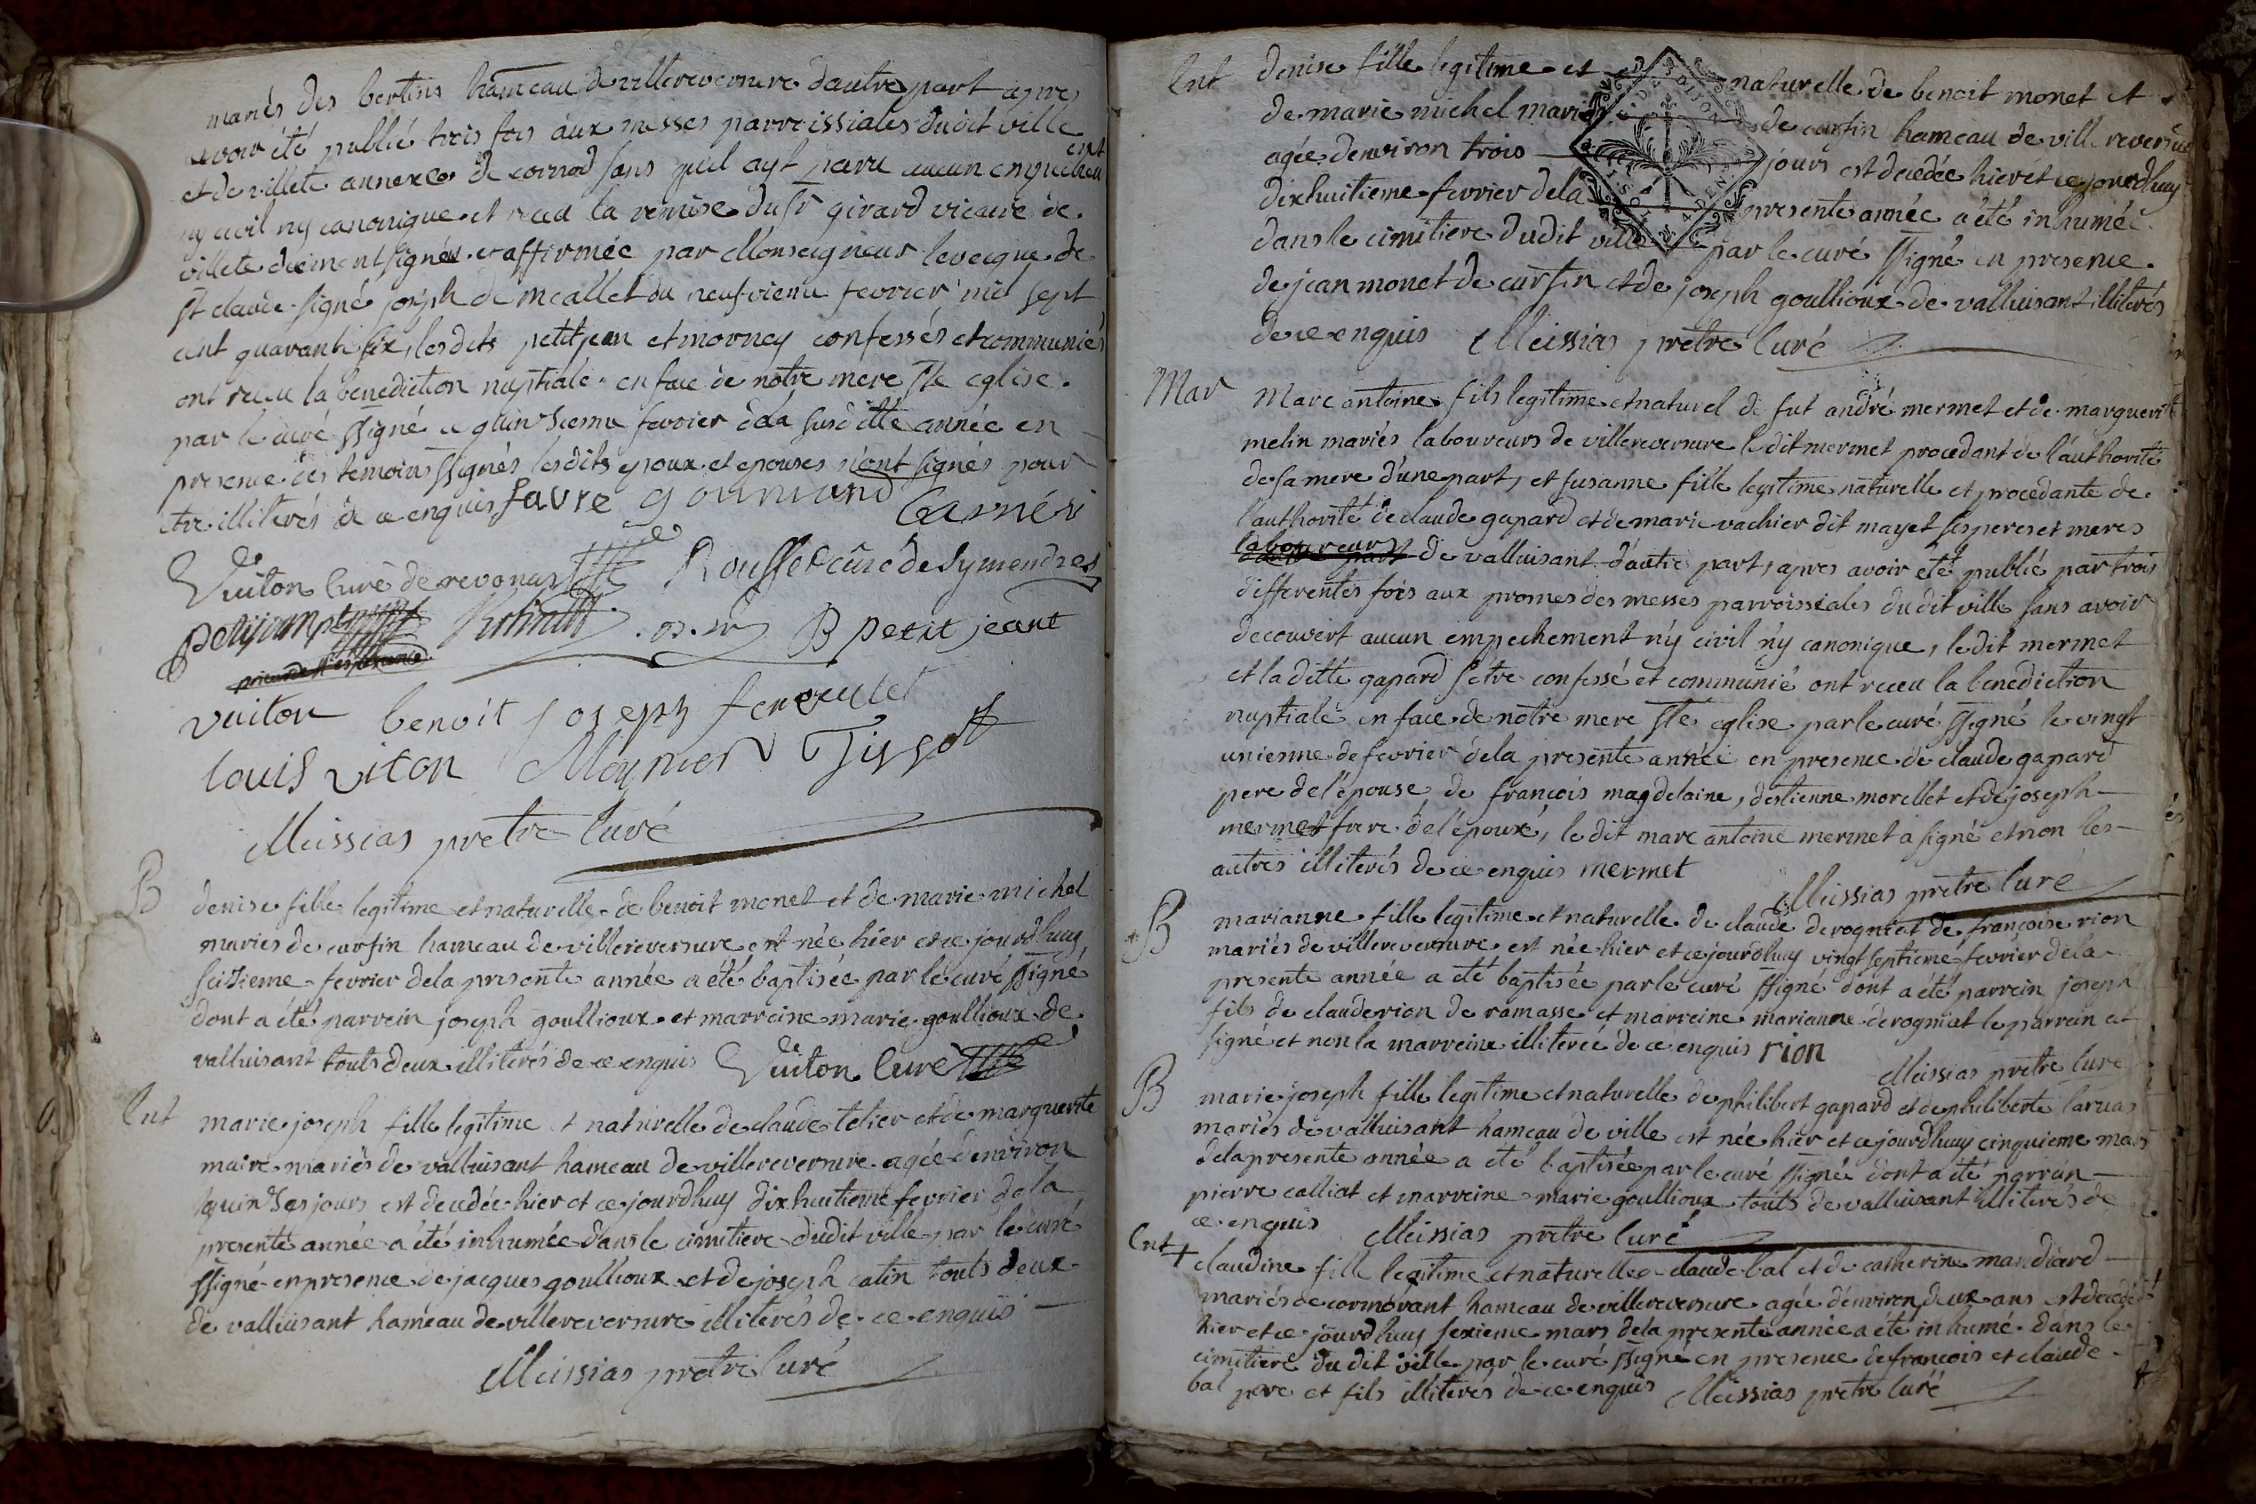 mariés des bertins hameau de villereversure d'autre part apres
avoir été publié trois fois aux messes parroissiales dudit ville
et de villete annexe de cornod sans quil ayt paru aucun empechem
ent
ny civil ny canonique et receu la remise du sr girard vicaire de
villete duement signée et affirmée par Monseigneur leveque de
st claude signé joseph de meallet du neufvieme fevrier mil sept
cent quarante six, lesdits petitjean et mornay confessés et communiés
ont receu la benediction nuptiale en face de notre mere ste eglise
par le curé ssigné ce quinsieme fevrier de la susditte année en
presence des temoins ssignés lesdits epoux et epouses n'ont signés pour
etre illiterés de ce enquis favre gourmand
Vuiton Curé de revonas Rousset curé de Symendres
B petit jeant
vuiton benoit joseph
louis viton Moynier Tissot
Meissias pretre Curé
B denise fille legitime et naturelle de benoit monet et de marie michel
mariés de cursin hameau de villereversure est née hier et ce jourdhuy
seizieme fevrier de la presente année a été baptisée par le curé ssigné
dont a été parrein joseph goullioux et marreine marie goullioux de
valluisant touts deux illiterés de ce enquis Vuiton Curé
Ent marie joseph fille legitime et naturelle de claude telier et de marguerite
maire mariés de valluisant hameau de villereversure agée denviron
quinses jours est decedée hier et ce jourdhuy dixhuitieme fevrier de la
presente année a été inhumée dans le cimitiere dudit ville par le curé
ssigné en presence de jacques goullioux et de joseph catin touts deux
de valluisant hameau de villereversure illiterés de ce enquis
Meissias pretre Curé
Ent denise fille legitime et naturelle de benoit monet et
de marie michel mariés de cursin hameau de villereversure
agée denviron trois jours est decedée hier et ce jourdhuy
dixhuitieme fevrier de la presente année a été inhumée
dans le cimitiere dudit ville par le curé ssigné en presence
de jean monet de cursin et de joseph goullioux de valluisant illiterés
de ce enquis Meissias pretre Curé
Mar Marc antoine fils legitime et naturel de fut andré mermet et de marguerite
melin mariés laboureurs de villereversure ledit mermet procedant de l'authorité
de sa mere d'une part, et susanne fille legitime naturelle et procedante de
l'authorité de claude gapard et de marie vachier dit mayet ses peres et meres
laboureurs de valluisant d'autre part, apres avoir eté publié par trois
differentes fois aux prosnes des messes parroissiales du dit ville sans avoir
decouvert aucun empechement n'y civil n'y canonique, le dit mermet
et la ditte gapard s'etre confessé et communié ont receu la benediction
nuptiale en face de notre mere ste eglise par le curé ssigné le vingt
unieme de fevrier de la presente année en presence de claude gapard
pere de l'épouse de francois magdelaine, destienne morellet et de joseph
mermet frere de l'époux, le dit marc antoine mermet a signé et non les
autres illiterés de ce enquis mermet
Meissias pretre Curé
B marianne fille legitime et naturelle de claude derognat et de francoise rion
mariés de villereversure est née hier et ce jourdhuy vingt septieme fevrier de la
presente année a eté baptisée par le curé ssigné dont a été parrein joseph
fils de claude rion de ramasse et marreine marianne derogniat le parrein at
signé et non la marreine illiterée de ce enquis rion
Meissias pretre Curé
B marie joseph fille legitime et naturelle de philibert gapard et de philiberte laruas
mariés de valluisant hameau de ville est née hier et ce jourdhuy cinquieme mars
de la presente année a été baptisée par le curé ssigné dont a été parrain
pierre calliat et marreine marie goullioux touts de valluisant illiterés de
ce enquis Meissias pretre Curé
Ent claudine fille legitime et naturelle de claude bal et de catherine mandiard
mariés de cormorant hameau de villereversure agée denviron deux ans est decedée
hier et ce jourdhuy sexieme mars de la presente année a été inhumé dans le
cimitiere du dit ville par le curé ssigné en presence de francois et claude
bal pere et fils illiterés de ce enquis Meissias pretre Curé